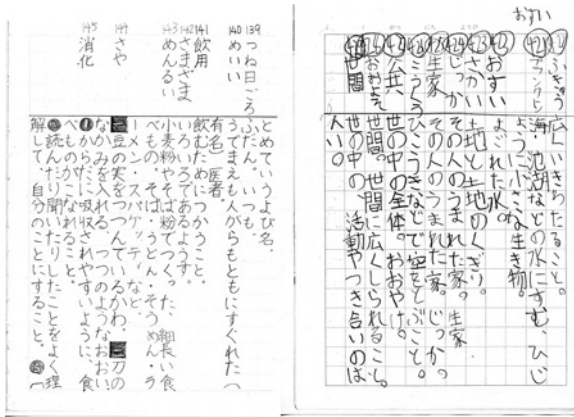 おすい
ふきゅう 広くいきわたること。
プランクトン 海、池湖などの水にすむ、ひじ
ょうに小さな生き物。
おすい よごれた水。
さかい 土地と土地のくぎり。
じっか その人のうまれた家。生家
生家 その人のうまれた家。じっか。
こうくう ひこうきなどで空をとぶこと。
公共 世の中の全体。おおやけ。
世間。世間に広くしられること。
世間 世の中の、活動やつき合いのは
んい。
とめていうよび名。
139 つね日ごろ ふだん。いつも。
140 めいい うでまえも人がらもともにすぐれた(
有名)医者。
141 飲用 飲むためにつかうこと。
142 さまざま いろいろであるようす。
143 めんるい 小麦粉やそば粉でつくった、細長い食
べもの。そば・うどん・そうめん・ラ
ーメン・スパゲッティなど。
144 さや 豆の実をつつんでいるかわ。二刀の
なかみを入れる、つつのようなおおい。
145 消化 ❶からだに吸収されやすいように、食
べものがこなれること。
読んだり聞いたりしたことをよく理
解して、自分のことにすること。